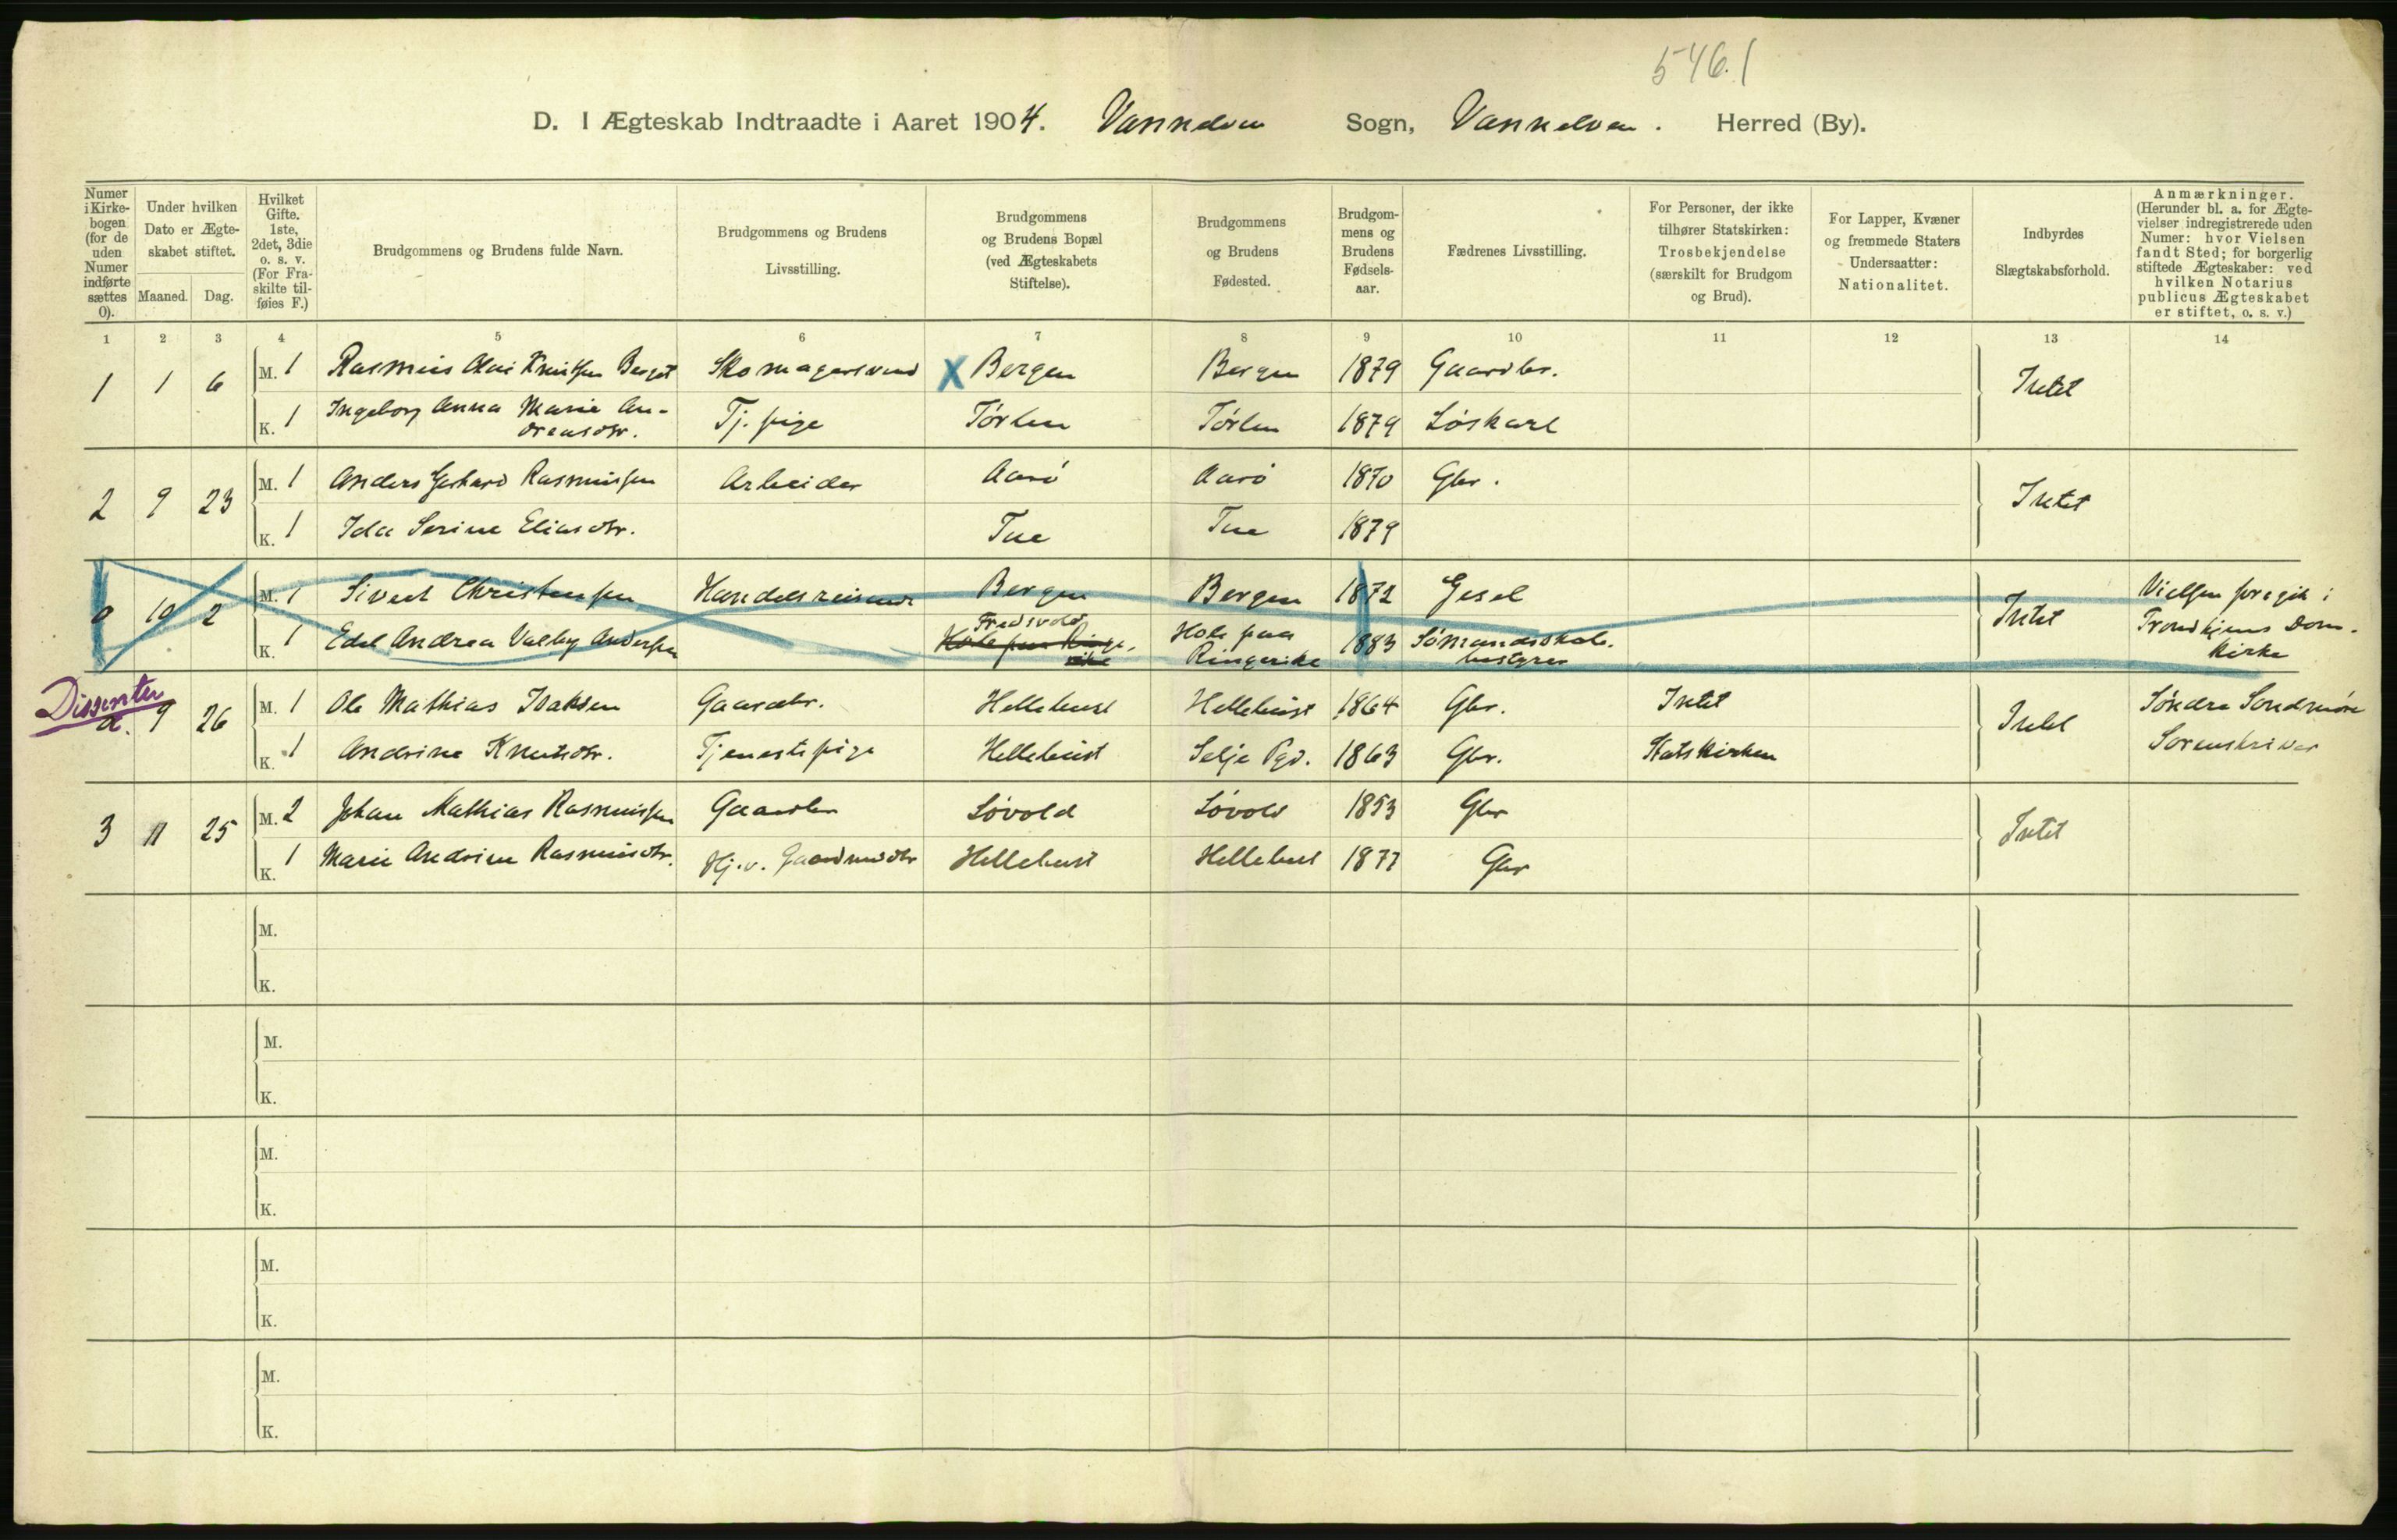 546.1
D. I Ægteskab Indtraadte i Aaret 1904. Vannelven Sogn, Vannelven. Herred (By).
Numer i Kirkebogen (for de uden Numer indførte sættes 0).
Under hvilken Dato er Ægteskabet stiftet.
Maaned. Dag.
Hvilket Gifte. 1ste, 2det, 3die o. s. v. (For Fraskilte tilføies F.)
Brudgommens og Brudens fulde Navn.
Brudgommens og Brudens Livsstilling.
Brudgommens og Brudens Bopæl (ved Ægteskabets Stiftelse).
Brudgommens og Brudens Fødested.
Brudgommens og Brudens Fødselsaar.
Fædrenes Livsstilling.
For Personer, der ikke tilhører Statskirken: Trosbekjendelse (særskilt for Brudgom og Brud).
For Lapper, Kvæner og fremmede Staters Undersaatter: Nationalitet.
Indbyrdes Slægtskabsforhold.
Anmærkninger. (Herunder bl. a. for Ægtevielser indregistrerede uden Numer: hvor Vielsen fandt Sted; for borgerlig stiftede Ægteskaber: ved hvilken Notarius publicus Ægteskabet er stiftet, o. s. v.)
1 2 3 4 5 6 7 8 9 10 11 12 13 14
1 1 6 M. 1 Rasmus Olai Knutsen Berget Skomagersvend X Bergen Bergen 1879 Gaardbr. Intet
K. 1 Ingeborg Anna Marie Andreasdtr. Tj. pige Tørlen Tørlen 1879 Løskarl
2 9 23 M. 1 Anders Gerhard Rasmussen Arbeider Aarø Aarø 1870 Gbr. Intet
K. 1 Ida Serine Eliasdtr. Tue Tue 1879
0 10 2 M. 1 Sivert Christensen Handelsreisende Bergen Bergen 1872 Gesel Intet Vielsen foregik i Trondhjems Domkirke
K. 1 Edel Andrea Valby Andersen Fredsvold Hole paa Ringerike Hole paa Ringerike 1883 Sømandsskolebestyrer
Dissenter
d. 9 26 M. 1 Ole Mathias Isaksen Gaardbr. Hellebust Hellebust 1864 Gbr. Intet Intet Søndre Søndmøre Sorenskriver
K. 1 Andrine Knutsdtr. Tjenestepige Hellebust Selje Pgd. 1863 Gbr. Statskirken
3 11 25 M. 2 Johan Mathias Rasmussen Gaardbr Løvold Løvold 1853 Gbr Intet
K. 1 Marie Andrine Rasmusdtr. Hj.v. Gaardmdtr Hellebust Hellebust 1877 Gbr
M.
K.
M.
K.
M.
K.
M.
K.
M.
K.